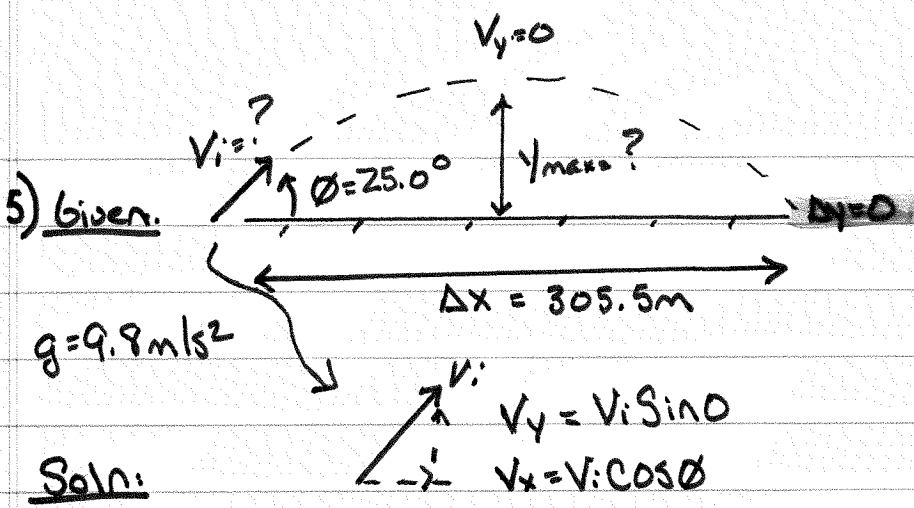 Vy=0
Vi=?
Ø=25.0°
ymax=?
5) Given:
Δy=0
Δx = 305.5m
g=9.8m/s²
Vi
Vy = ViSinØ
Soln:
Vx=ViCosØ